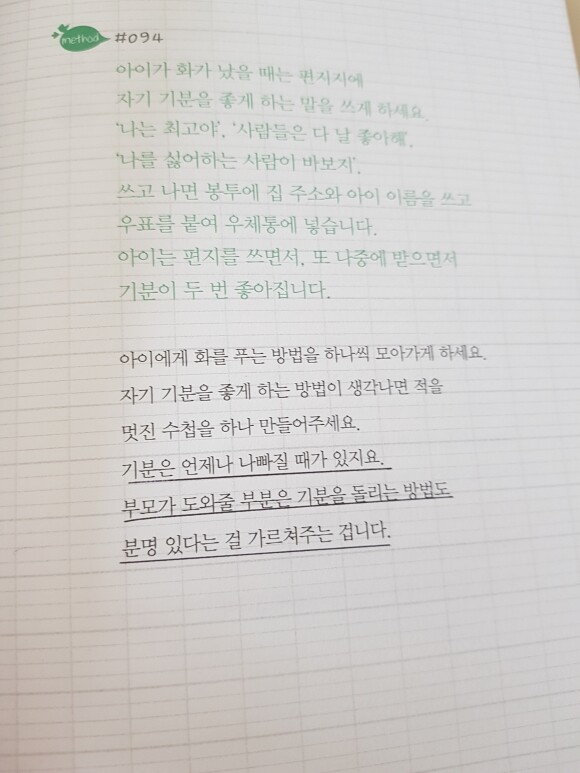 method #094
아이가 화가 났을 때는 편지지에
자기 기분을 좋게 하는 말을 쓰게 하세요.
'나는 최고야', '사람들은 다 날 좋아해',
'나를 싫어하는 사람이 바보지'.
쓰고 나면 봉투에 집 주소와 아이 이름을 쓰고
우표를 붙여 우체통에 넣습니다.
아이는 편지를 쓰면서, 또 나중에 받으면서
기분이 두 번 좋아집니다.
아이에게 화를 푸는 방법을 하나씩 모아가게 하세요.
자기 기분을 좋게 하는 방법이 생각나면 적을
멋진 수첩을 하나 만들어주세요.
기분은 언제나 나빠질 때가 있지요.
부모가 도와줄 부분은 기분을 돌리는 방법도
분명 있다는 걸 가르쳐주는 겁니다.